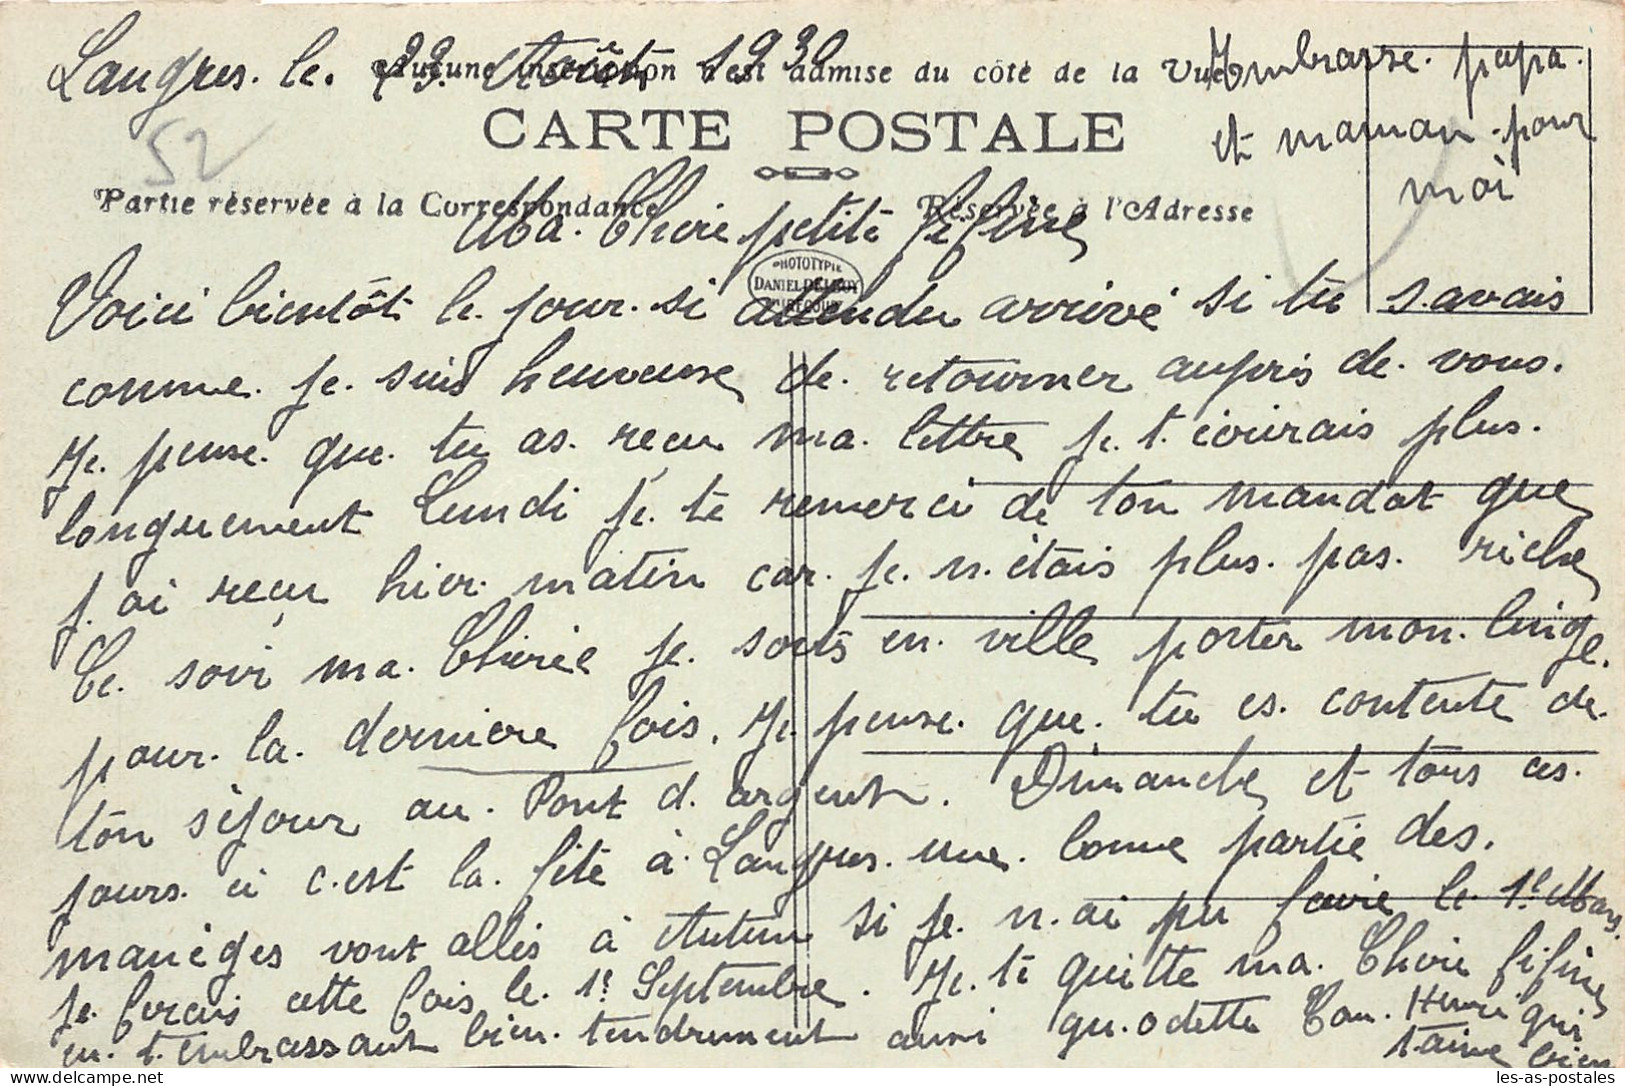 Langres. le. 22. Août 1930
Embrasse. papa.
et maman. pour
moi
Aucune inscription n'est admise du côté de la Vue
52
CARTE POSTALE
Partie réservée à la Correspondance
Réservée à l'Adresse
Ma. Chère petite fifine
PHOTOTYPIE
DANIEL DELBOY
MIRECOURT
Voici bientôt le. jour. si attendu arrivé si tu savais
comme. je. suis heureuse de. retourner auprès de. vous.
Je. pense. que. tu as. reçu ma. lettre je. t. écrirais plus.
longuement Lundi je. te remerci de ton mandat que
j. ai reçu hier. matin car. je. n. étais plus. pas. riche
Ce. soir ma. Chérie je. sorts en. ville porter mon. linge.
pour. la. dernière fois. Je. pense. que. tu es. contente de.
ton séjour au. Pont d. argent. Dimanche et tous ces.
jours. ci c. est la. fête à. Langres. une. bonne partie des.
manèges vont allés à Autun si je. n. ai pu faire le 1e Mars.
je. ferais cette fois le. 1e Septembre. Je. te quitte ma. Chère fifine
en. t. embrassant bien. tendrement ainsi qu. odette Ton. Henri qui
t. aime bien
les-as-postales